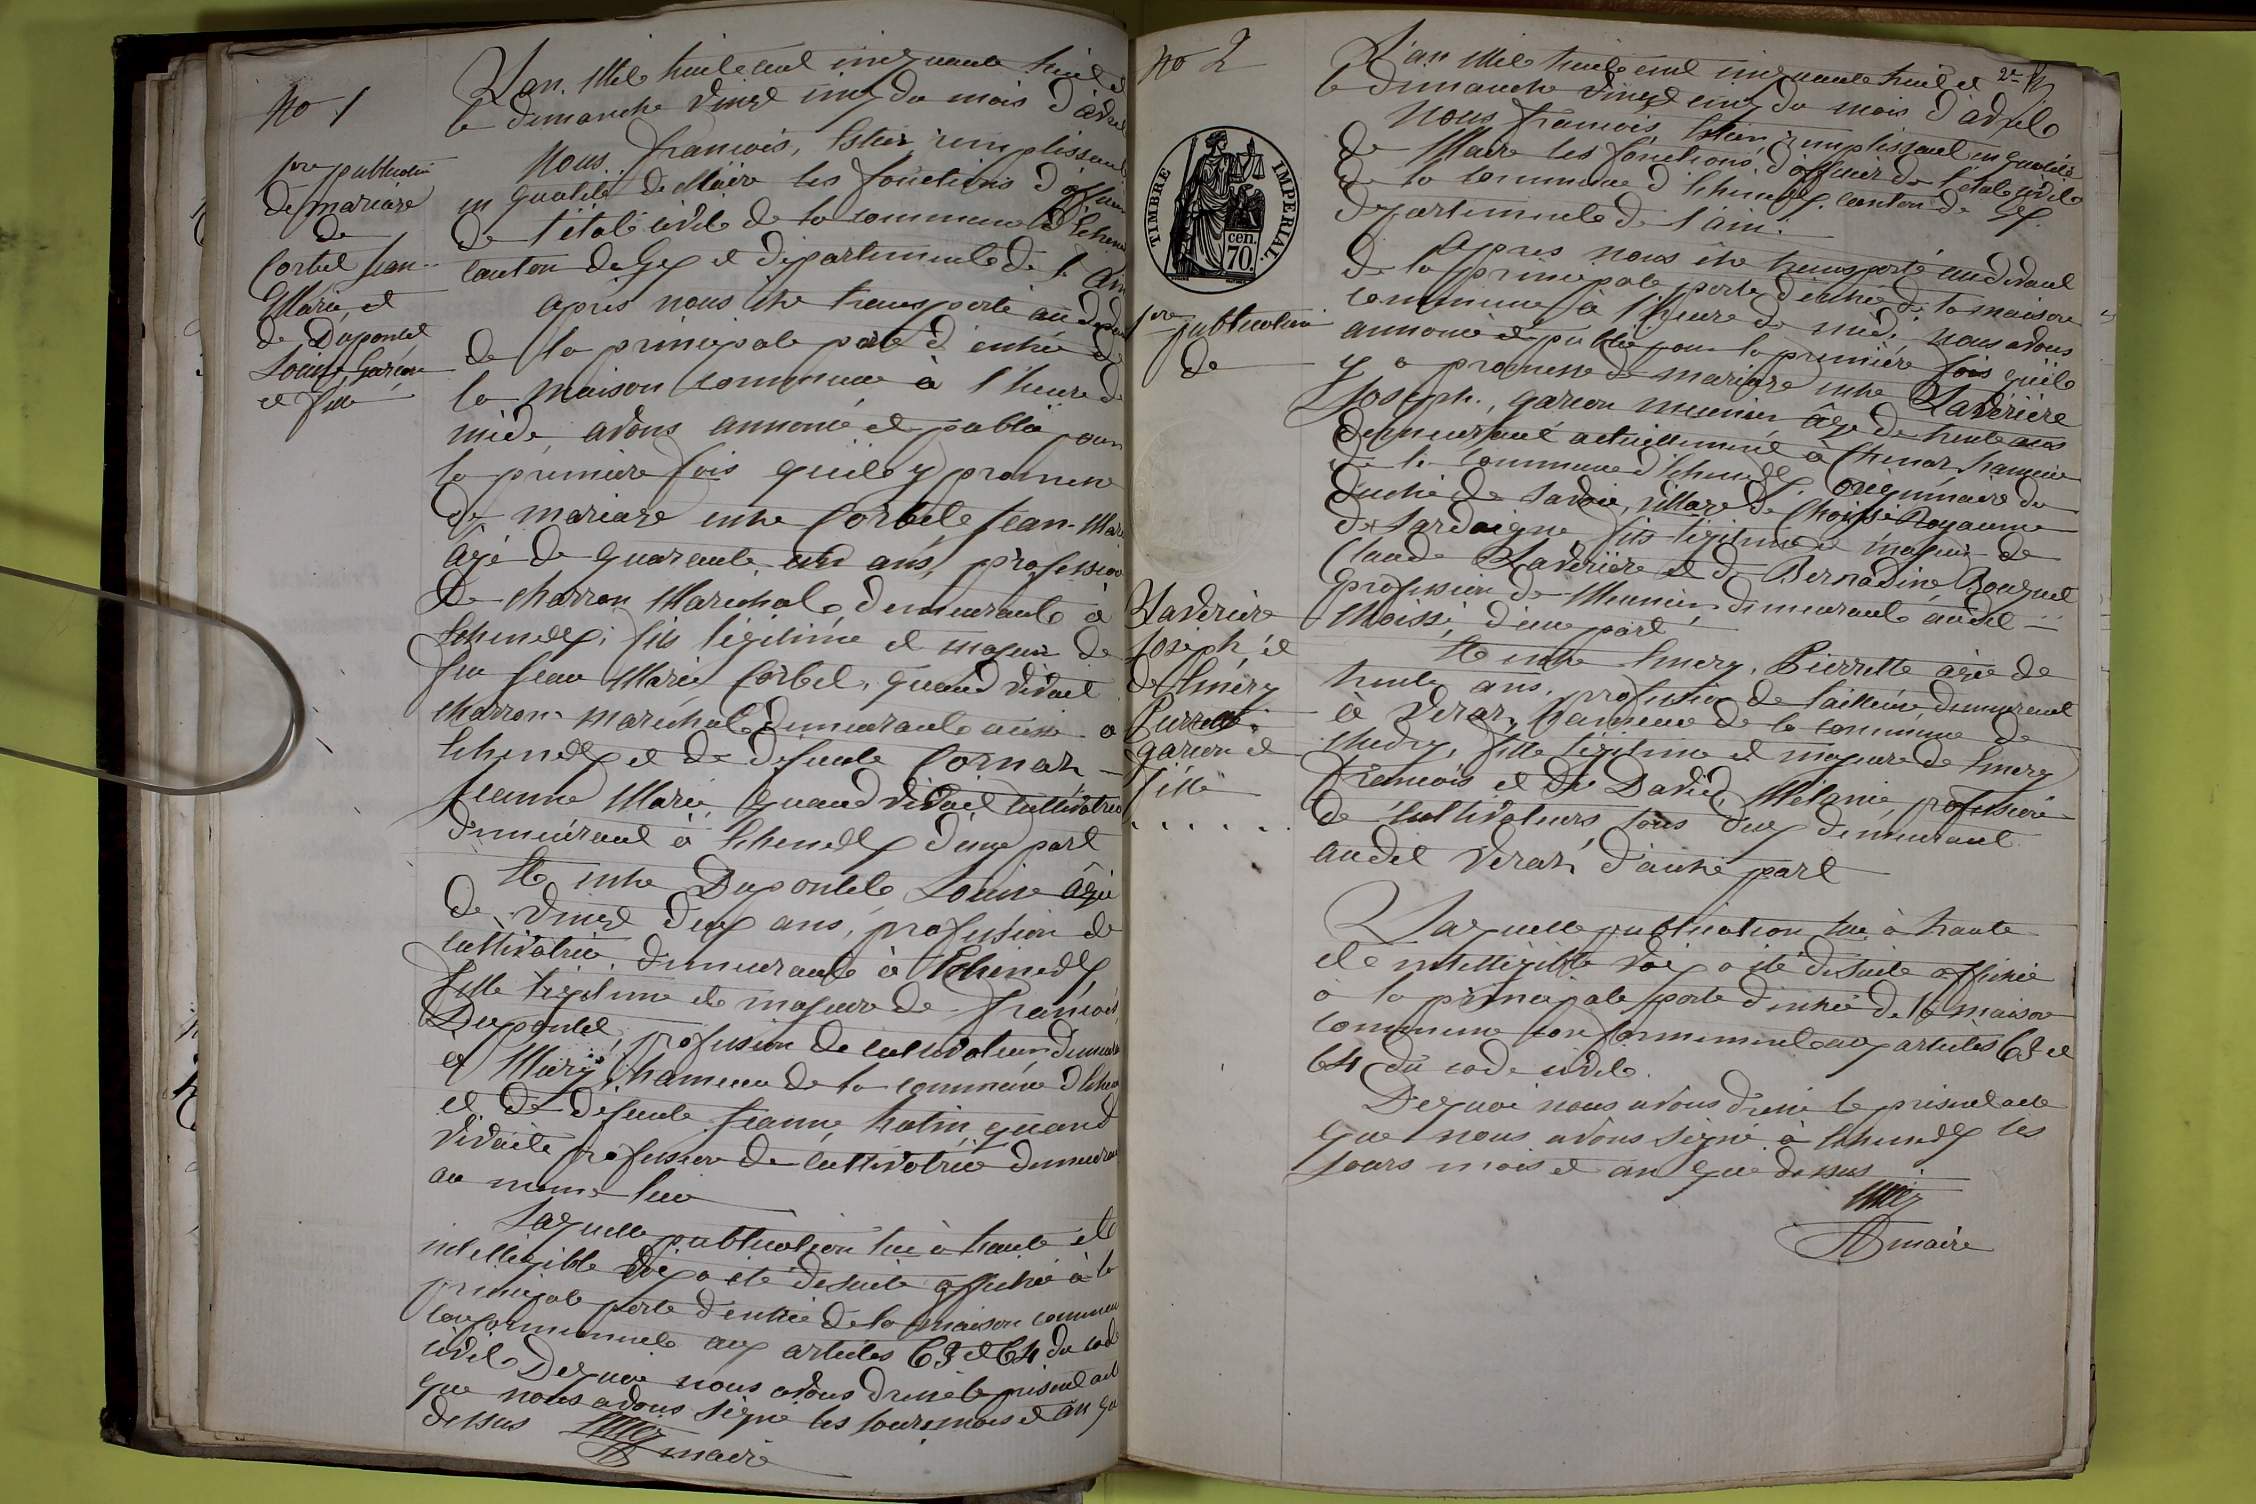 No 1
1re publication
de mariage
de
Corbet Jean-
Marie, et
de Dupontel
Louise Garçon
et fille
L'an Mil huit cent cinquante huit et
le dimanche vingt cinq du mois d'avril
Nous François, Estier, remplissant
en qualité de Maire les fonctions d'officier
de l'état civil de la commune d'Echene
canton de Gex et département de l'Ain
après nous être transporté au devant
de la principale porte d'entrée de
la maison commune à l'heure de
midi, avons annoncé et publié pour
la première fois qu'il y promesse
de mariage entre Corbet Jean-Marie
âgé de quarante un ans, profession
de charron Maréchal, demeurant à
Echenevex, fils légitime et majeur de
feu Jean Marie Corbel, quand vivait
charron-maréchal demeurant aussi à
Echenevex et de défunte Cornaz
Jeanne Marie, quand vivait cultivatrice
demeurant à Echenevex d'une part
Et entre Dupontel Louise âgée
de vingt deux ans, profession de
cultivatrice, demeurant à Echenevex,
fille légitime et majeure de François
Dupontel, profession de cultivateur demeurant
à Mury, hameau de la commune d'Echene
et de défunte Jeanne, quand
vivait profession de cultivatrice demeurant
au même lieu
Laquelle publication lue à haute et
intelligible voix a été de suite affichée à la
principale porte d'entrée de la maison commune
conformément aux articles 63 et 64 du code
civil. De quoi nous avons dressé le présent acte
que nous avons signé les jour mois et an que
dessus
maire
No 2
2e
TIMBRE IMPERIAL.
cen.
70
1re
publication
de
Laverière
Joseph, et
de Emery
Pierrette
garçon et
fille
L'an Mil huit cent cinquante huit et
le dimanche vingt cinq du mois d'avril
Nous François, Estier, remplissant en qualité
de Maire les fonctions d'officier de l'état civil
de la commune d'Echenevex, canton de Gex.
département de l'ain.
Après nous être transporté au devant
de la principale porte d'entrée de la maison
commune à l'heure de midi, nous avons
annoncé et publié pour la première fois qu'il
y a promesse de mariage entre Laverière
Joseph, garçon meunier, âgé de trente ans
demeurant actuellement à Chenaz hameau
de la commune d'Echenevex, originaire du
duché de Savoie, village de Choissi Royaume
de Sardaigne, fils légitime et majeur de
Claude Laverière et de Bernadine Bouquet
profession de Meunier, demeurant audit
Choissi, d'une part
Et entre Emery, Pierrette âgée de
trente ans, profession de tailleuse demeurant
à Veraz, hameau de la commune de
Chevry, fille légitime et majeure de Emery
François et de David, Mélanie, profession
de cultivateurs tous deux demeurant
audit Veraz d'autre part
Laquelle publication lue à haute
et intelligible voix a été de suite affichée
à la principale porte d'entrée de la maison
commune conformément aux articles 63 et
64 du code civil.
De quoi nous avons dressé le présent acte
que nous avons signé à Echenevex les
jours mois et an que dessus
maire